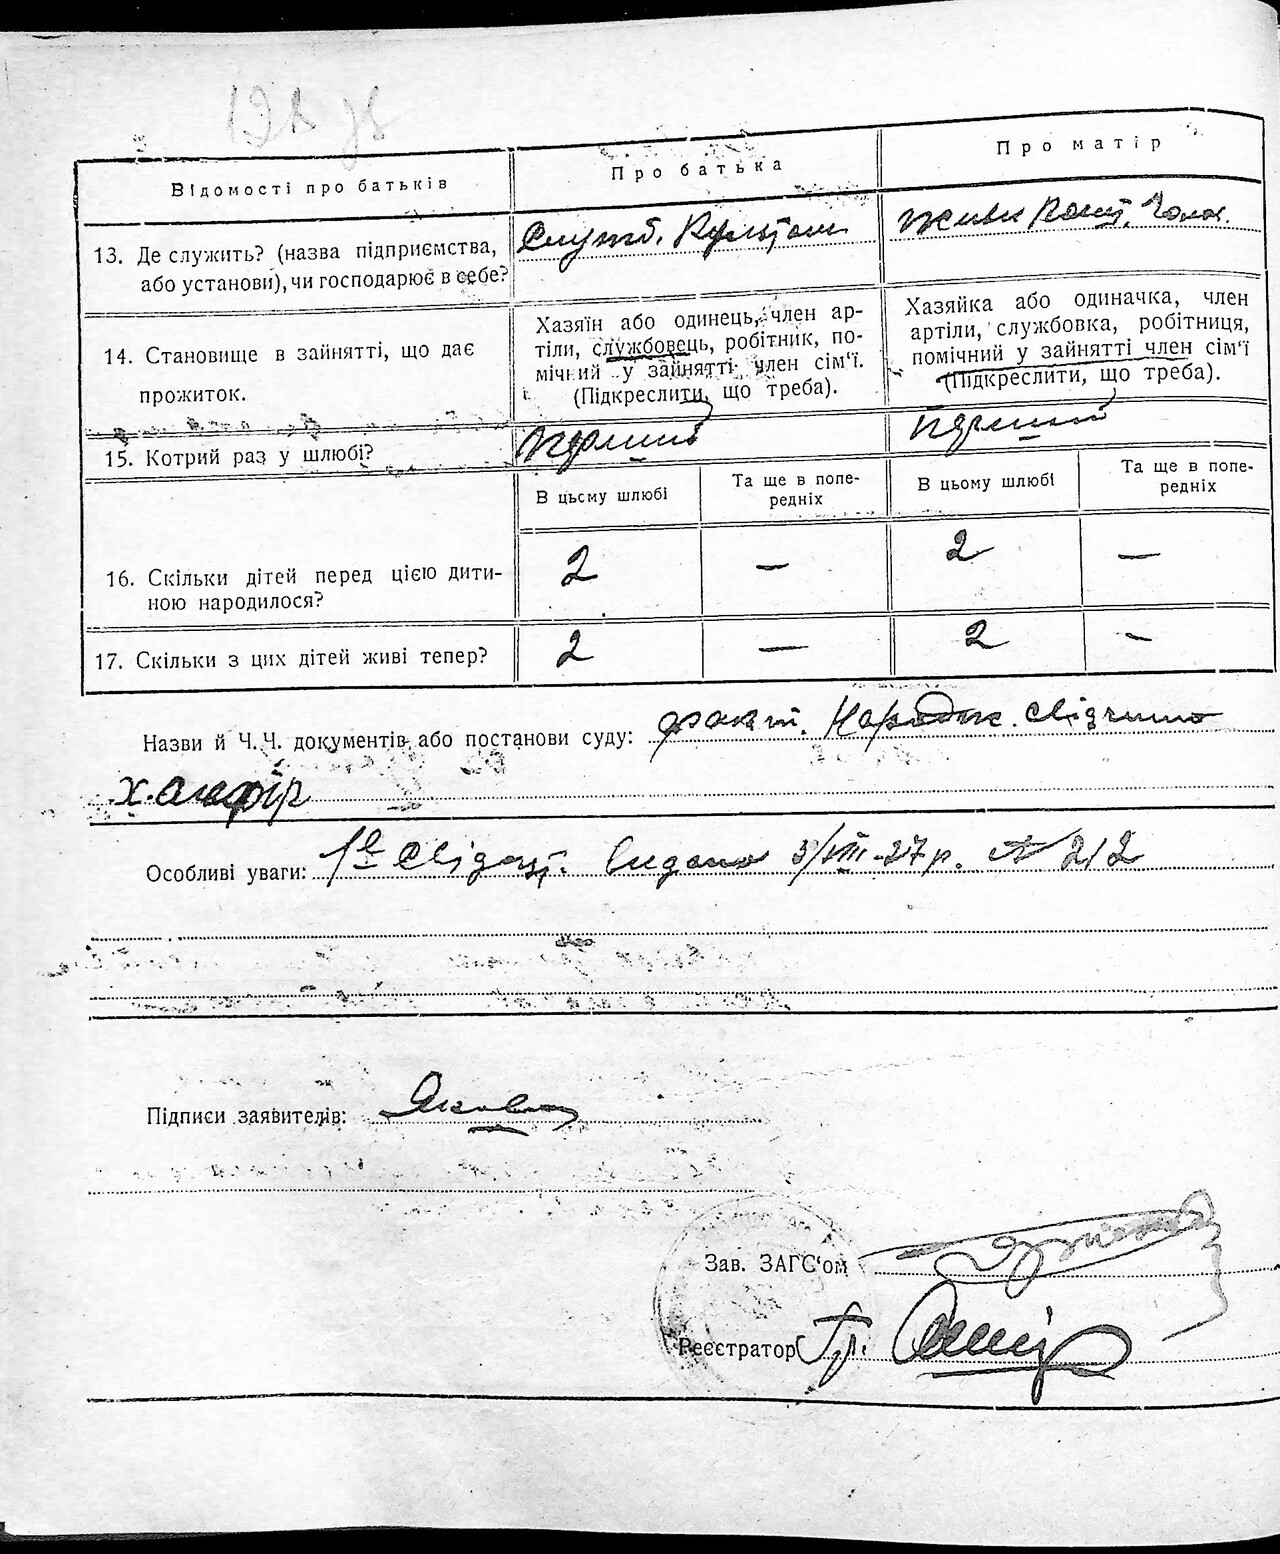 Відомості про батьків
Про батька
Про матір
13. Де служить? (назва підприємства,
або установи), чи господарює в себе?
Служб.
Живе Кошт. Чолов.
14. Становище в зайнятті, що дає
прожиток.
Хазяїн або одинець, член ар-
тіли, службовець, робітник, по-
мічний у зайнятті член сім'ї.
(Підкреслити, що треба).
Хазяйка або одиначка, член
артіли, службовка, робітниця,
помічний у зайнятті член сім'ї
(Підкреслити, що треба).
15. Котрий раз у шлюбі?
перший
перший
В цьому шлюбі
Та ще в попе-
редніх
В цьому шлюбі
Та ще в попе-
редніх
16. Скільки дітей перед цією дити-
ною народилося?
2 — 2 —
17. Скільки з цих дітей живі тепер?
2 — 2 —
Назви й Ч.Ч. документів або постанови суду: факт. Народж. свідчило
Особливі уваги: видано 3/VIII-27 р. № 212
Підписи заявителів:
Зав. ЗАГС'ом
Реєстратор